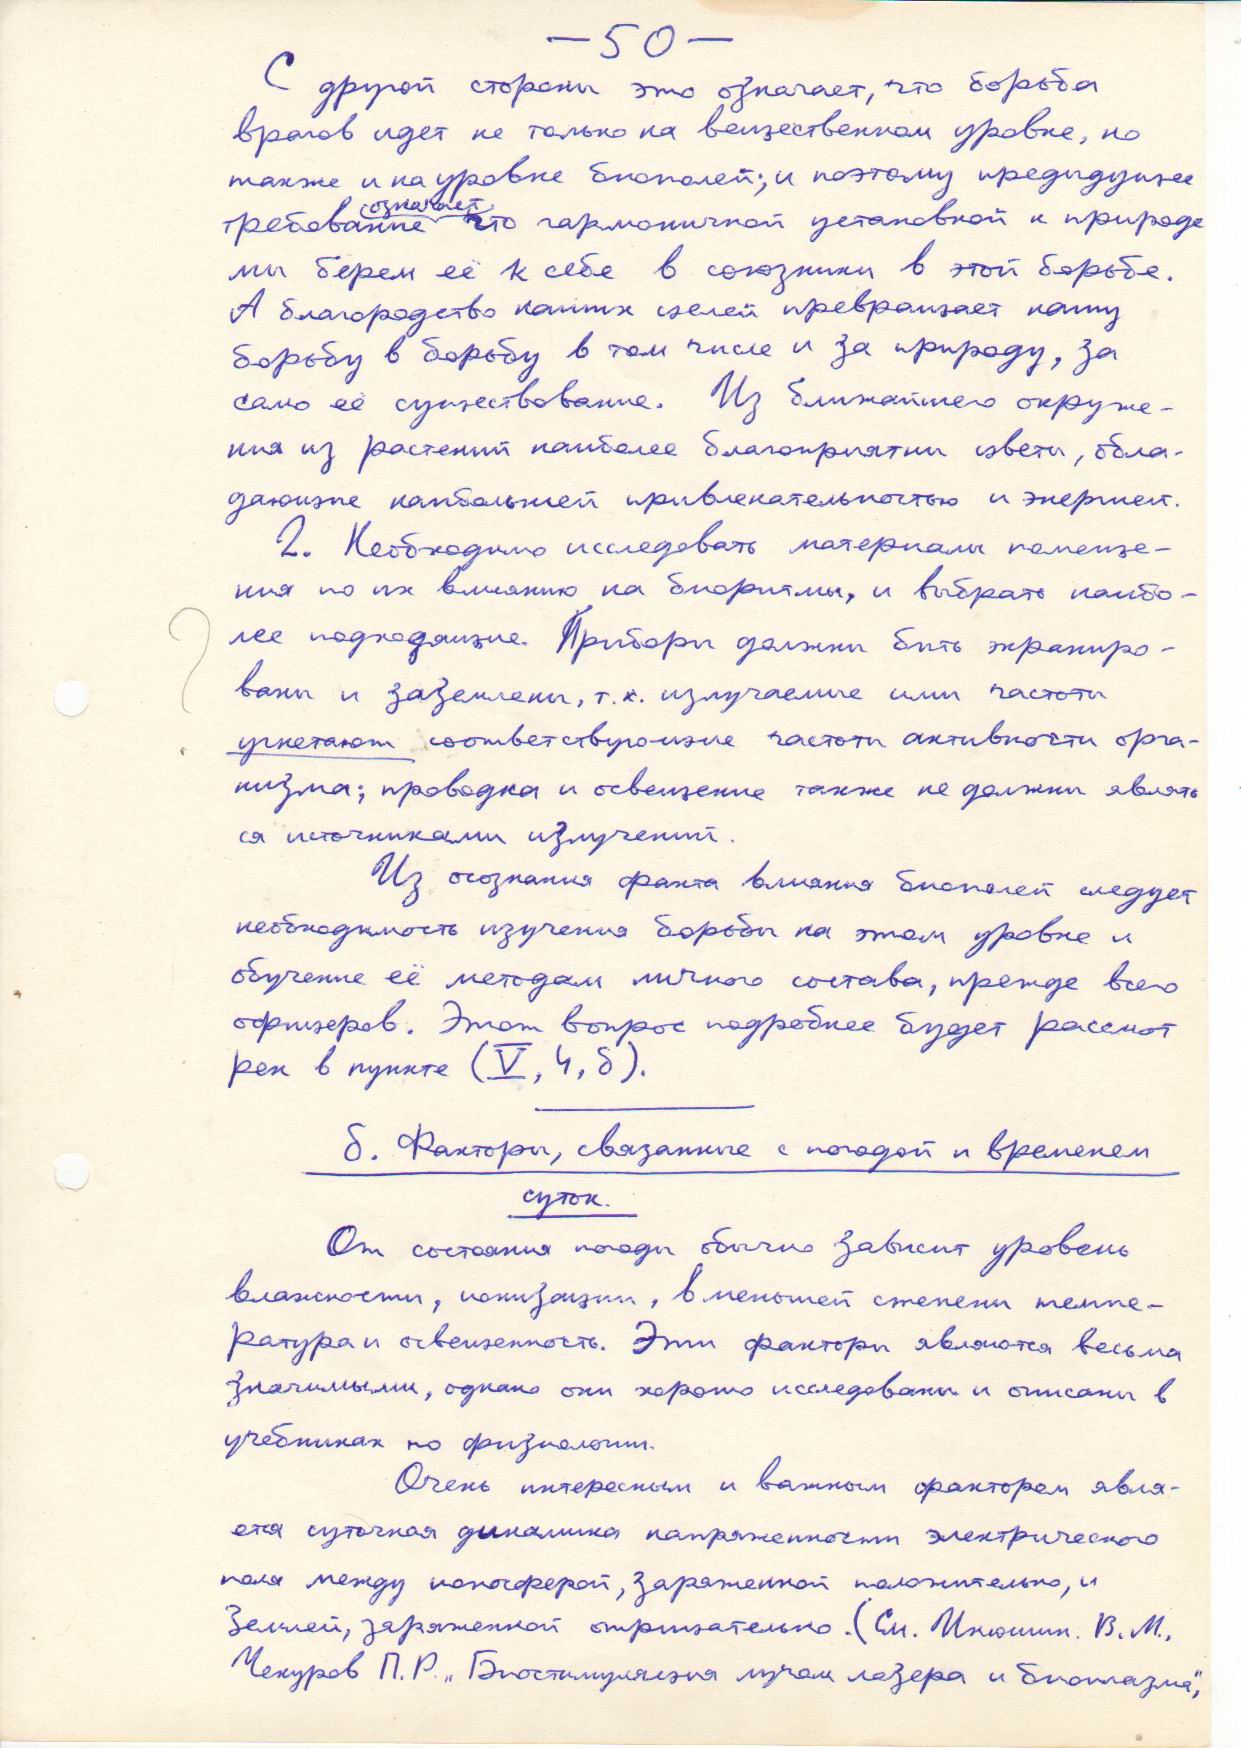 — 50 —
С другой стороны это означает, что борьба
врагов идет не только на вещественном уровне, но
также и на уровне биополей; и поэтому предыдущее
означает
требование что гармоничной установкой к природе
мы берем её к себе в союзники в этой борьбе.
А благородство наших целей превращает нашу
борьбу в борьбу в том числе и за природу, за
само её существование. Из ближайшего окруже-
ния из растений наиболее благоприятны цветы, обла-
дающие наибольшей привлекательностью и энергией.
2. Необходимо исследовать материалы помеще-
ния по их влиянию на биоритмы, и выбрать наибо-
лее подходящие. Приборы должны быть экраниро-
ваны и заземлены, т.к. излучаемые ими частоты
угнетают соответствующие частоты активности орга-
низма; проводка и освещение также не должны являть
ся источниками излучений.
Из осознания факта влияния биополей следует
необходимость изучения борьбы на этом уровне и
обучение её методам личного состава, прежде всего
офицеров. Этот вопрос подробнее будет рассмот
рен в пункте (V, 4, б).
б. Факторы, связанные с погодой и временем
суток.
От состояния погоды обычно зависит уровень
влажности, ионизации, в меньшей степени темпе-
ратура и освещенность. Эти факторы являются весьма
значимыми, однако они хорошо исследованы и описаны в
учебниках по физиологии.
Очень интересным и важным фактором явля-
ется суточная динамика напряженности электрического
поля между ионосферой, заряженной положительно, и
Землей, заряженной отрицательно. (См. Инюшин. В.М.,
Чекуров П.Р. „Биостимуляция лучом лазера и биоплазма",